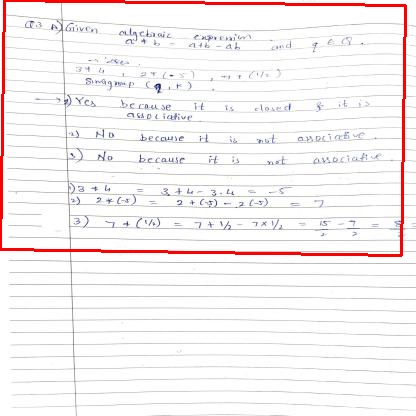 Q.3 A) Given algebraic expression
a * b = a+b - ab and q ∈ Q.
3 * 4 , 2 * (-5) , 7 * (1/2)
Simigroup (Q, *) .
→ 1) Yes because it is closed & it is
associative.
2) No because it is not associative.
3) No because it is not associative.
1) 3 * 4 = 3 + 4 - 3.4 = -5
2) 2 * (-5) = 2 + (-5) - 2(-5) = 7
3) 7 * (1/2) = 7 + 1/2 - 7 x 1/2 = 15/2 - 7/2 = 8/2 =